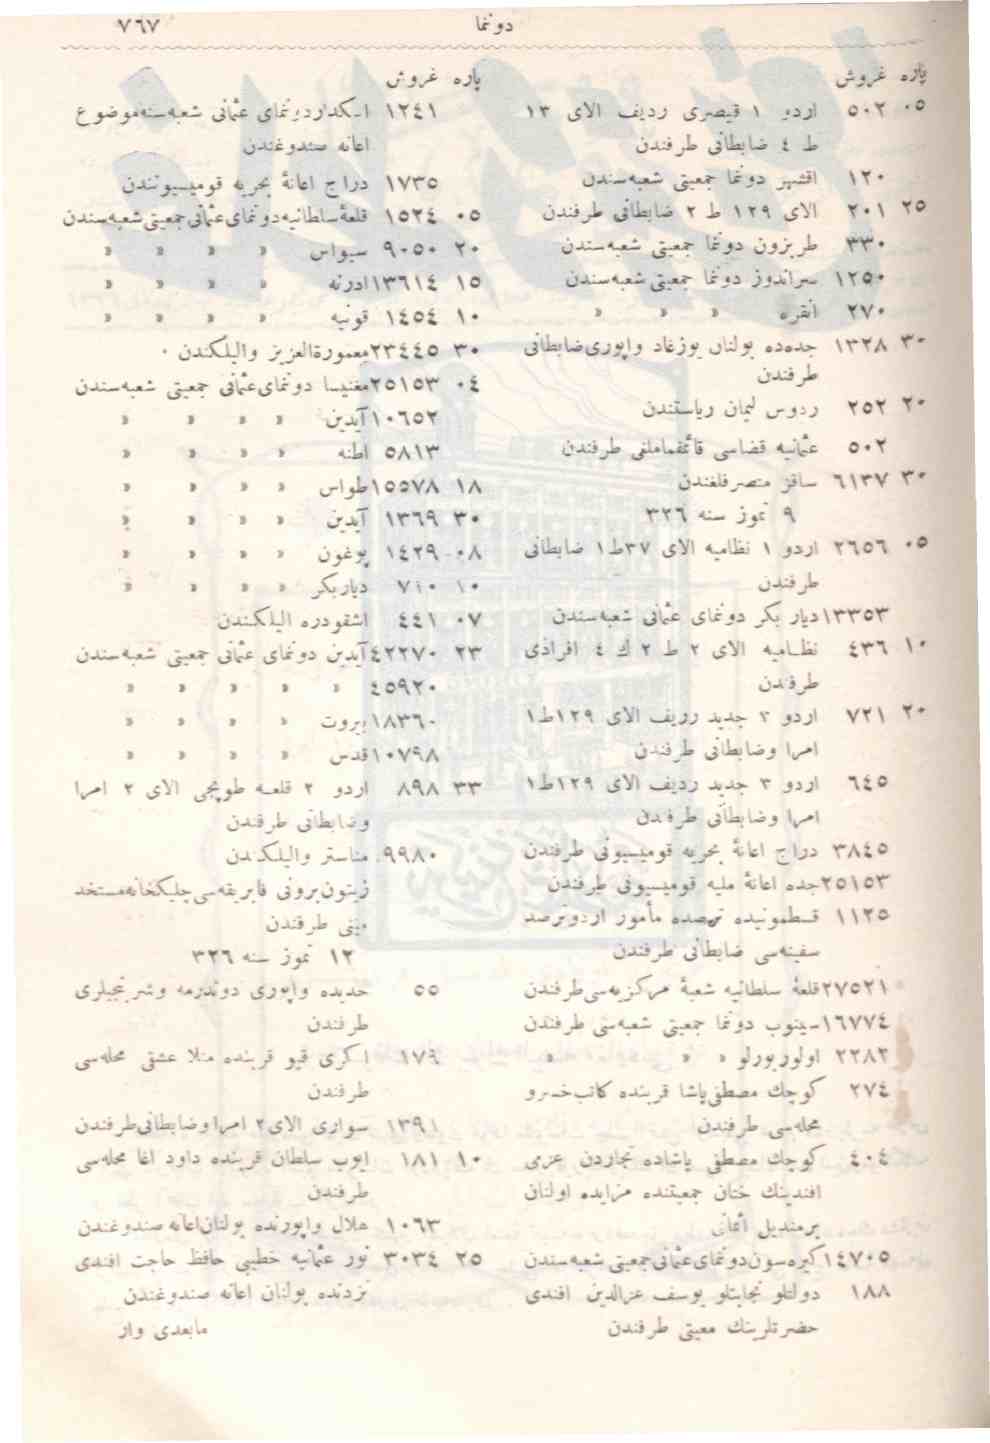 دوننما ٧٦٧
پاره غروش
٠٥ ٥٠٢ اردو ١ قیصری ردیف الای ١٣
ط ٤ ضابطانی طرفندن
١٢٠ اقشهر دوننما جمعیتی شعبه‌سندن
٢٥ ٢٠١ الای ١٢٩ ط ٢ ضابطانی طرفندن
٣٣٠ طربزون دوننما جمعیتی شعبه‌سندن
١٢٥٠ سراندوز دوننما جمعیتی شعبه‌سندن
٢٧٠ انقره » » » »
٣٠ ١٣٢٨ جده‌ده بولنان یوزغاد واپوری ضابطانی
طرفندن
٢٠ ٢٥٢ ردوس لیمان ریاستندن
٥٠٢ عثمانیه قضاسی قائمقاملغی طرفندن
٣٠ ٦١٣٧ ساقز متصرفلغندن
٩ تموز سنه ٣٢٦
٠٥ ٢٦٥٦ اردو ١ نظامیه الای ٣٧ ط ١ ضابطانی
طرفندن
١٣٣٥٣ دیار بکر دوننمای عثمانی شعبه‌سندن
١٠ ٤٣٦ نظامیه الای ٢ ط ٢ ك ٤ افرادی
طرفندن
٢٠ ٧٢١ اردو ٣ جدید رریف الای ١٢٩ ط ١
امرا وضابطانی طرفندن
٦٤٥ اردو ٣ جدید ردیف الای ١٢٩ ط ١
امرا وضابطانی طرفندن
٣٨٤٥ دراج اعانهٔ بحریه قومیسیونی طرفندن
٢٥١٥٣ جده اعانهٔ ملیه قومیسیونی طرفندن
١١٢٥ قسطمونیده ترصده مأمور اردوترصد
سفینه‌سی ضابطانی طرفندن
٢٧٥٢١ قلعهٔ سلطانیه شعبهٔ مرکزیه‌سی طرفندن
١٦٧٧٤ سینوب دوننما جمعیتی شعبه‌سی طرفندن
٢٢٨٢ اولوربورلو » » »
٢٧٤ کوچك مصطفی پاشا قربنده کاتب خسرو
محله‌سی طرفندن
٤٠٤ کوچك مصطفی پاشاده تجاردن عزمی
افندینك ختان جمعیتنده مزایده اولنان
برمندیل اثمانی
١٤٧٠٥ کیره‌سون دوننمای عثمانی جمعیتی شعبه‌سندن
١٨٨ دولتلو نجابتلو یوسف عزالدین افندی
حضرتلرینك معیتی طرفندن
پاره غروش
١٢٤١ اسکدار دوننمای عثمانی شعبه‌سنه موضوع
اعانه صندوغندن
١٧٣٥ دراج اعانهٔ بحریه قومیسیونندن
٠٥ ١٥٢٤ قلعهٔ سلطانیه دوننمای عثمانی جمعیتی شعبه‌سندن
٢٠ ٩٠٥٠ سیواس » » » »
١٥ ١٣٦١٤ ادرنه » » » »
١٠ ١٤٥٤ قونیه » » » »
٣٠ ٢٣٤٤٥ معمورةالعزیز والیلکندن
٠٤ ٢٥١٥٣ مغنیسا دوننمای عثمانی جمعیتی شعبه‌سندن
١٠٦٥٢ آیدین » » » »
٥٨١٣ اطنه » » » »
١٨ ١٥٥٧٨ طواس » » » »
٣٠ ١٣٦٩ آیدین » » » »
٠٨ ١٤٢٩ یوغون » » » »
١٠ ٧١٠ دیاربکر » » » »
٠٧ ٤٤١ اشقودره الیلکندن
٢٣ ٤٢٢٧٠ آیدین دوننمای عثمانی جمعیتی شعبه‌سندن
٤٥٩٢٠ » » » » »
١٨٣٦٠ بیروت » » » »
١٠٧٩٨ قدس » » » »
٣٣ ٨٩٨ اردو ٢ قلعه طوپجی الای ٢ امرا
وضابطانی طرفندن
٩٩٨٠ مناستر والیلکندن
زیتون‌برونی فابریقه‌سی چلیکخانه مستخد
مینی طرفندن
١٢ تموز سنه ٣٢٦
٥٥ حدیده واپوری دوندرمه وشربتجیلری
طرفندن
١٧٩ اکری قپو قربنده منلا عشقی محله‌سی
طرفندن
١٣٩١ سواری الای ٢ امرا وضابطانی طرفندن
١٠ ١٨١ ایوب سلطان قربنده داود اغا محله‌سی
طرفندن
١٠٦٣ هلال واپورنده بولنان اعانه صندوغندن
٢٥ ٣٠٣٤ نور عثمانیه خطیبی حافظ حاجت افندی
نزدنده بولنان اعانه صندوغندن
مابعدی وار